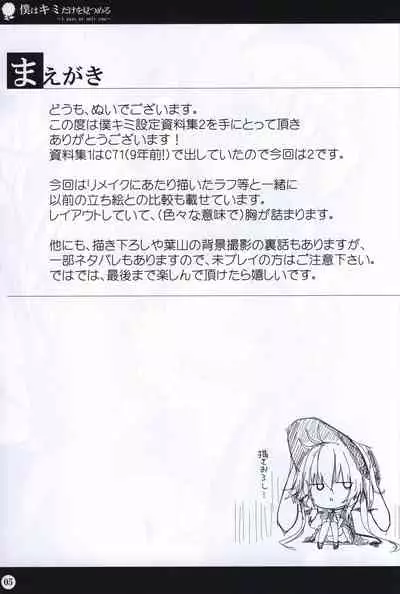 僕はキミだけを見つめる
～I gaze at only you～
まえがき
どうも、ぬいでございます。
この度は僕キミ設定資料集2を手にとって頂き
ありがとうございます！
資料集1はC71(9年前!)で出していたので今回は2です。
今回はリメイクにあたり描いたラフ等と一緒に
以前の立ち絵との比較も載せています。
レイアウトしていて、(色々な意味で)胸が詰まります。
他にも、描き下ろしや葉山の背景撮影の裏話もありますが、
一部ネタバレもありますので、未プレイの方はご注意下さい。
ではでは、最後まで楽しんで頂けたら嬉しいです。
描きおろし…
05